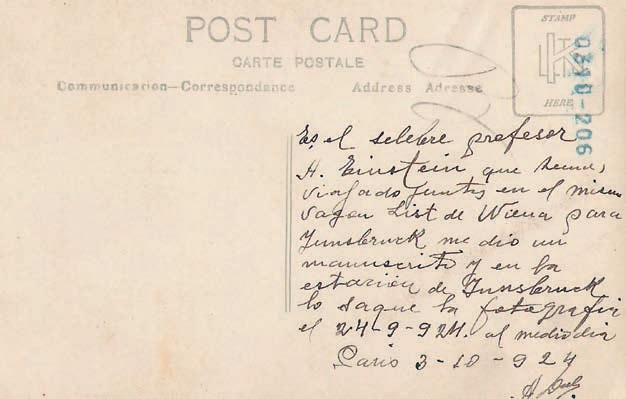 POST CARD
CARTE POSTALE
Communication—Correspondance
Address Adresse
STAMP
HERE
0310-206
20
Es el selebre profesor
A. Einstein, que hemos
viajado juntos en el mismo
vagon List de Wiena para
Junsbruck me dio un
manuscrito y en la
estación de Junsbruck
lo saque la fotografia
el 24-9-924. al mediodia
Paris 3-10-924